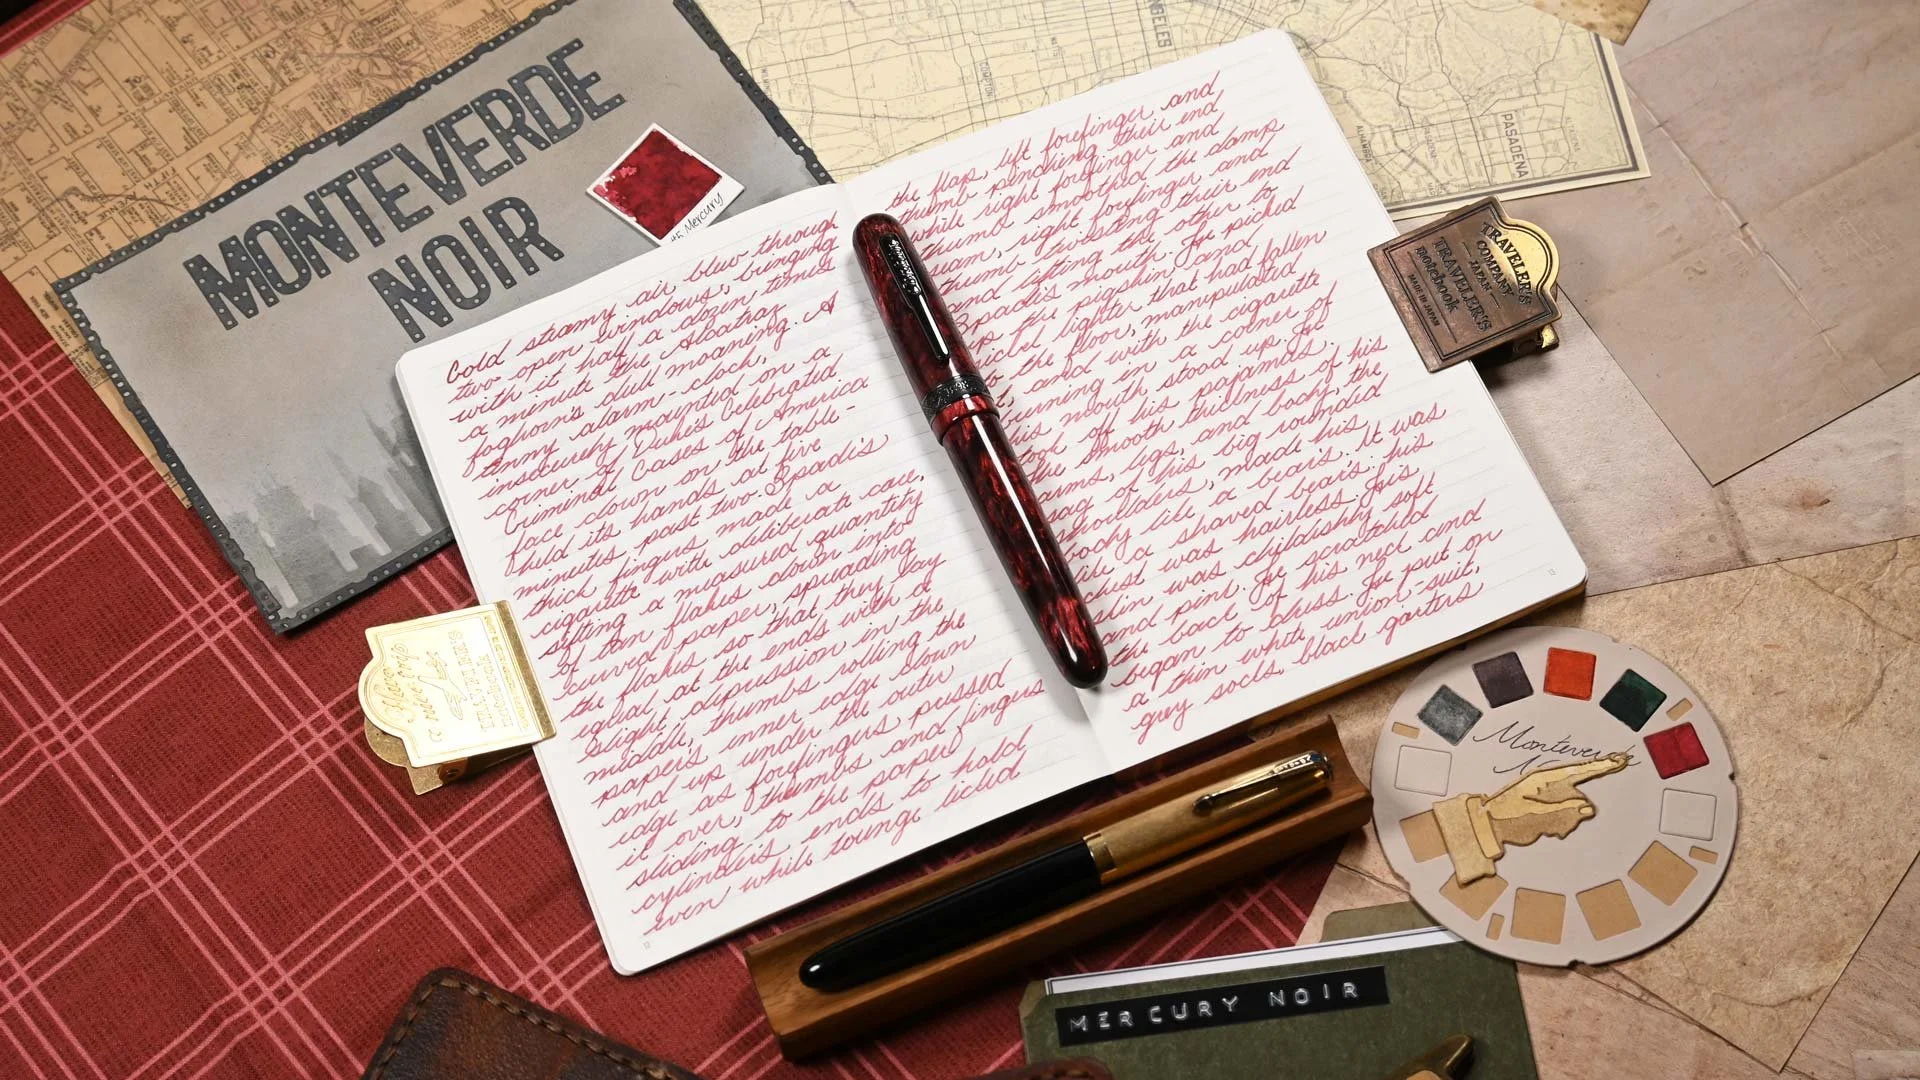 MONTEVERDE
NOIR
#5 Mercury
ANGELES
COMPTON
PASADENA
ALHAMBRA
Cold steamy air blew through
two open windows, bringing
with it half a dozen times
a minute the Alcatraz
foghorn's dull moaning. A
tinny alarm-clock,
insecurely mounted on a
corner of Duke's Celebrated
Criminal Cases of America
face down on the table-
held its hands at five
minutes past two. Spade's
thick fingers made a
cigarette with deliberate care,
sifting a measured quantity
of tan flakes down into
curved paper, spreading
the flakes so that they lay
equal at the ends with a
slight depression in the
middle, thumbs rolling the
paper's inner edge down
and up under the outer
edge as forefingers pressed
it over, thumbs and fingers
sliding to the paper
cylinder's ends to hold
even while tounge licked
12
the flap, left forefinger and
thumb pinching their end
while right forefinger and
thumb smoothed the damp
seam, right forefinger and
thumb twisting their end
and lifting the other to
Spade's mouth. He picked
up the pigskin and
nickel lighter that had fallen
to the floor, manipulated
it and with the cigarette
burning in a corner of
his mouth stood up. He
took off his pajamas.
the smooth thickness of his
arms, legs, and body, the
sag of his big rounded
shoulders, made his
body like a bear's. It was
like a shaved bear's. his
chest was hairless. His
skin was childishly soft
and pink. He scratched
the back of his neck and
began to dress. He put on
a thin white union-suit,
grey socks, black garters
13
TRAVELER'S
COMPANY
JAPAN
TRAVELER'S
notebook
MADE IN JAPAN
Monteverde
MERCURY NOIR